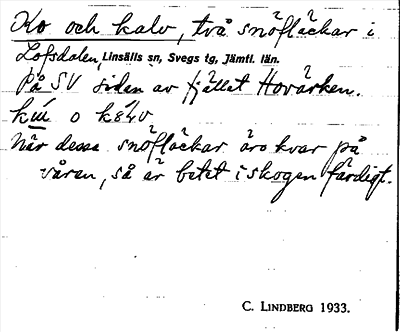 Ko och kalv, två snöfläckar i
Lofsdalen, Linsälls sn, Svegs tg, Jämtl. län.
På SV sidan av fjället Hovärken.
o
När dessa snöfläckar äro kvar på
våren, så är betet i skogen färdigt.
C. LINDBERG 1933.